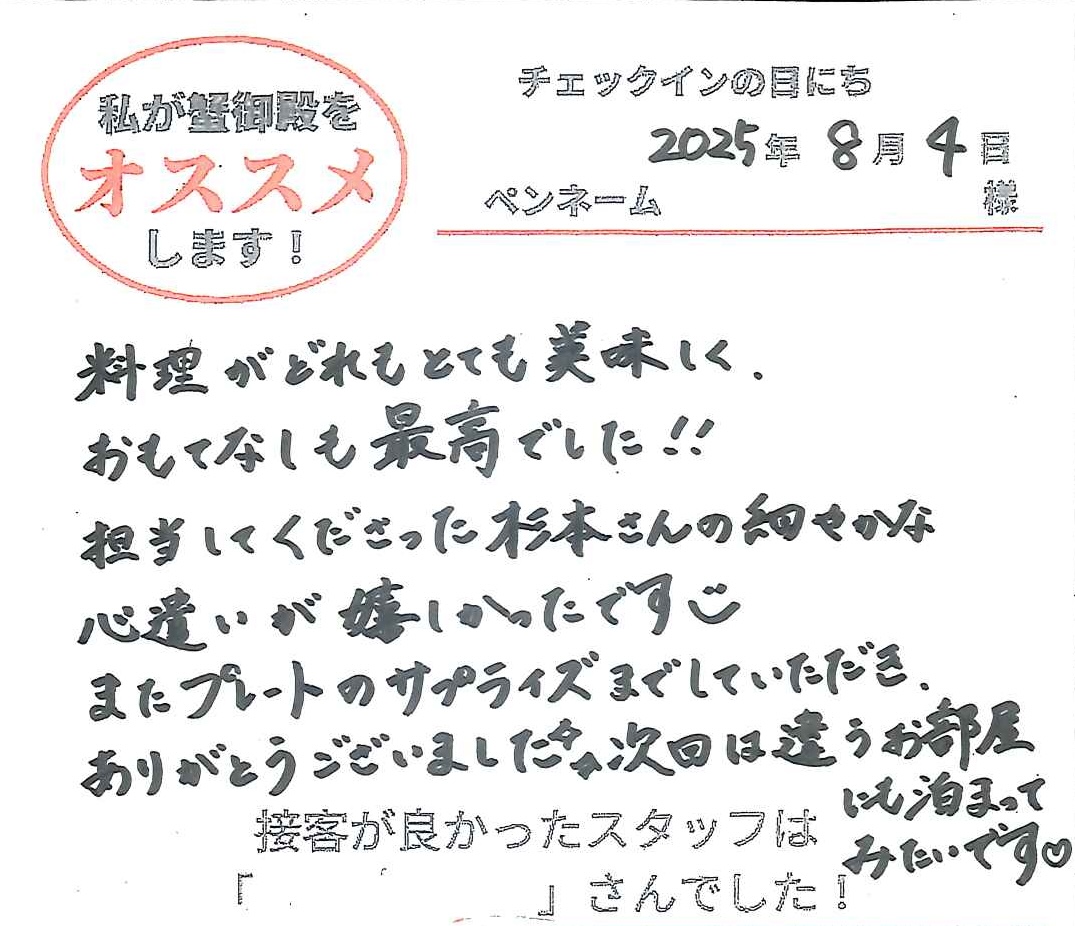 私が蟹御殿を
オススメ
します！
チェックインの日にち
2025年 8月 4日
ペンネーム 様
料理がどれもとても美味しく、
おもてなしも最高でした!!
担当してくださった杉本さんの細やかな
心遣いが嬉しかったです
またプレートのサプライズまでしていただき、
ありがとうございました 次回は違うお部屋
にも泊まって
みたいです♡
接客が良かったスタッフは
「 」さんでした！